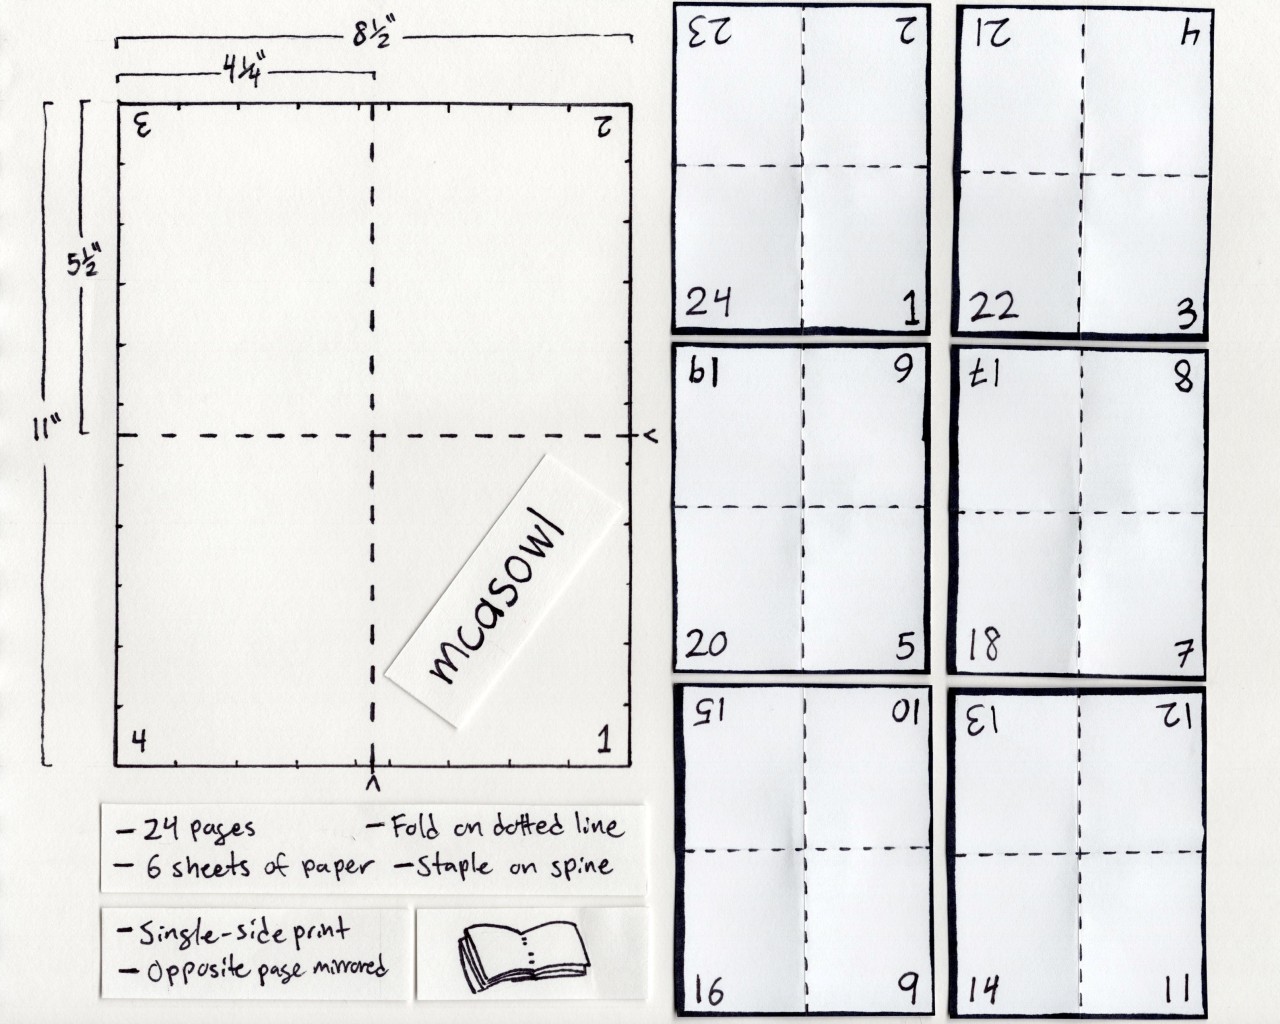 8½"
4¼"
5½"
11"
3 2
4 1
<
^
mcasowl
- 24 pages
- 6 sheets of paper
- Fold on dotted line
- Staple on spine
- Single-side print
- Opposite page mirrored
23 2
24 1
21 4
22 3
19 6
20 5
17 8
18 7
15 10
16 9
13 12
14 11